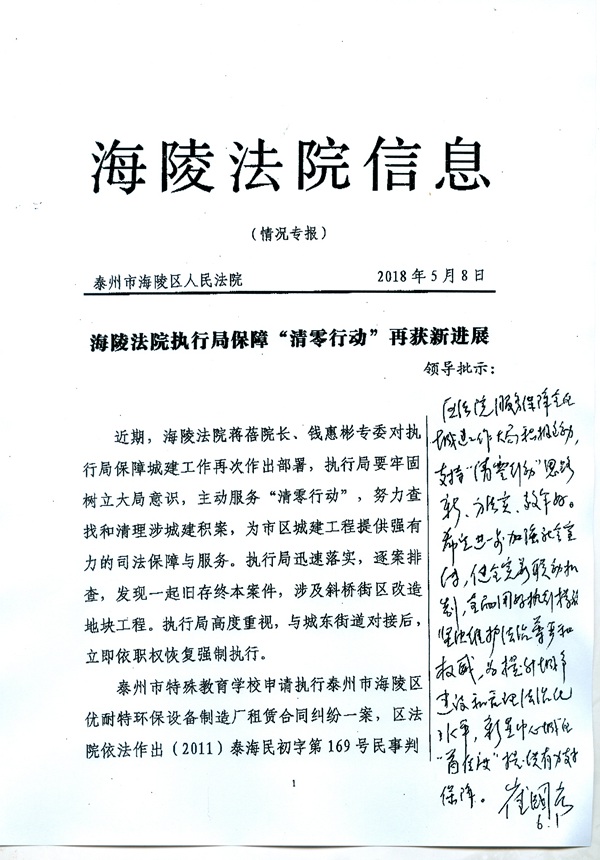 海陵法院信息
（情况专报）
泰州市海陵区人民法院 2018年5月8日
海陵法院执行局保障“清零行动”再获新进展
领导批示：
近期，海陵法院蒋蓓院长、钱惠彬专委对执
行局保障城建工作再次作出部署，执行局要牢固
树立大局意识，主动服务“清零行动”，努力查
找和清理涉城建积案，为市区城建工程提供强有
力的司法保障与服务。执行局迅速落实，逐案排
查，发现一起旧存终本案件，涉及斜桥街区改造
地块工程。执行局高度重视，与城东街道对接后，
立即依职权恢复强制执行。
泰州市特殊教育学校申请执行泰州市海陵区
优耐特环保设备制造厂租赁合同纠纷一案，区法
院依法作出（2011）泰海民初字第169号民事判
区法院服务保障全区
城建工作大局积极主动，
支持“清零行动”思路
新、方法实、效率好。
希望进一步加强社会宣
传，健全完善联动机
制，全面用好执行措施
坚决维护法治尊严和
权威，为提升城市
建设和管理法治化
水平，
保障。
6.1
1